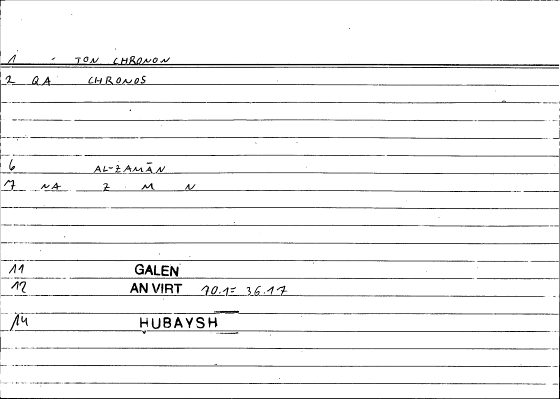 1 TON CHRONON
2 QA CHRONOS
6 AL-ZAMĀN
7 NA Z M N
11 GALEN
12 AN VIRT 10.1= 36.17
14 HUBAYSH